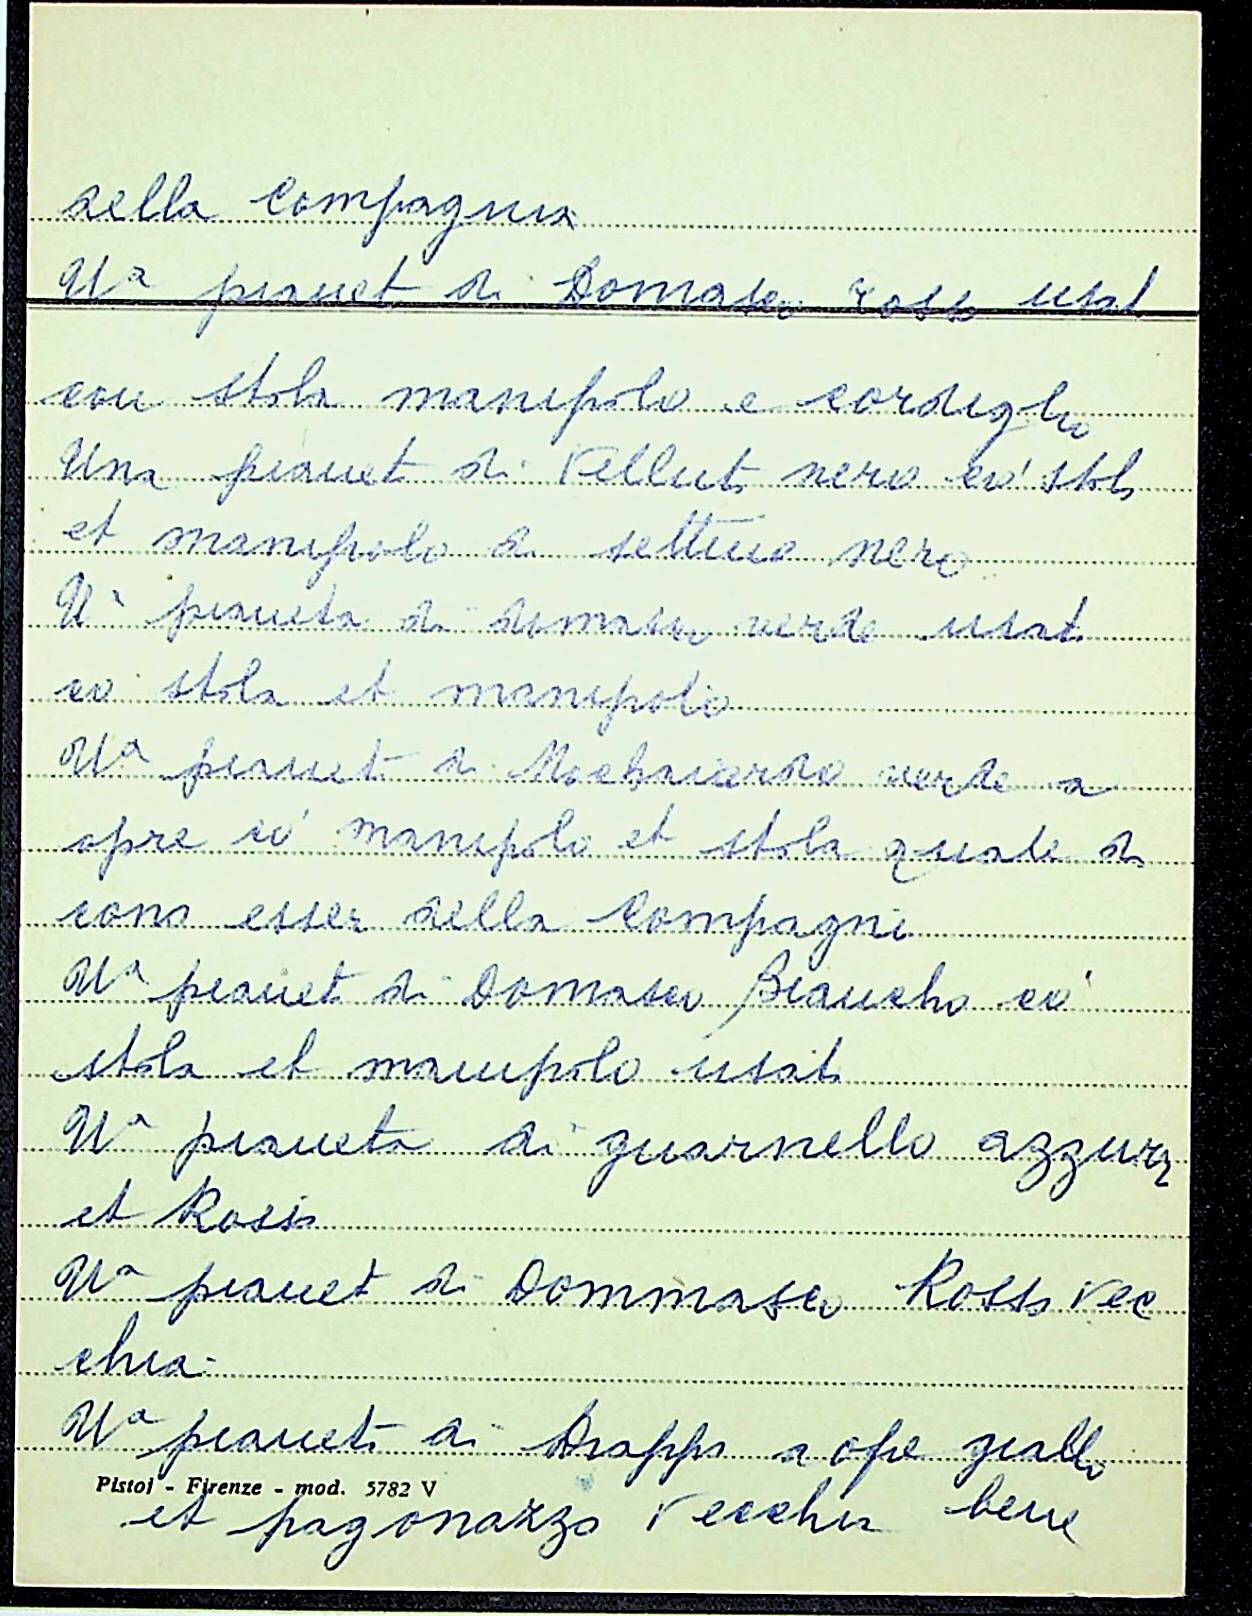 della Compagnia
Uª pianet di Domasco rosso usat
con stola manipolo e cordiglio
Una pianet di Vellut nero co' stola
et manipolo di settino nero
Uª pianeta di domasco verde usat
co stola et manipolo
Uª pianet di verde a
opre co' manipolo et stola quale di
cono esser della Compagni
Uª pianet di Domasco Biancho co'
stola et manipolo usat
Uª pianeta di guarnello azzurr
et Rosso
Uª pianet di Dommasco Rosso vec
chia
Uª pianet di Drappo a opre giallo
Pistoj - Firenze - mod. 5782 V
et pagonazzo vecchia bene